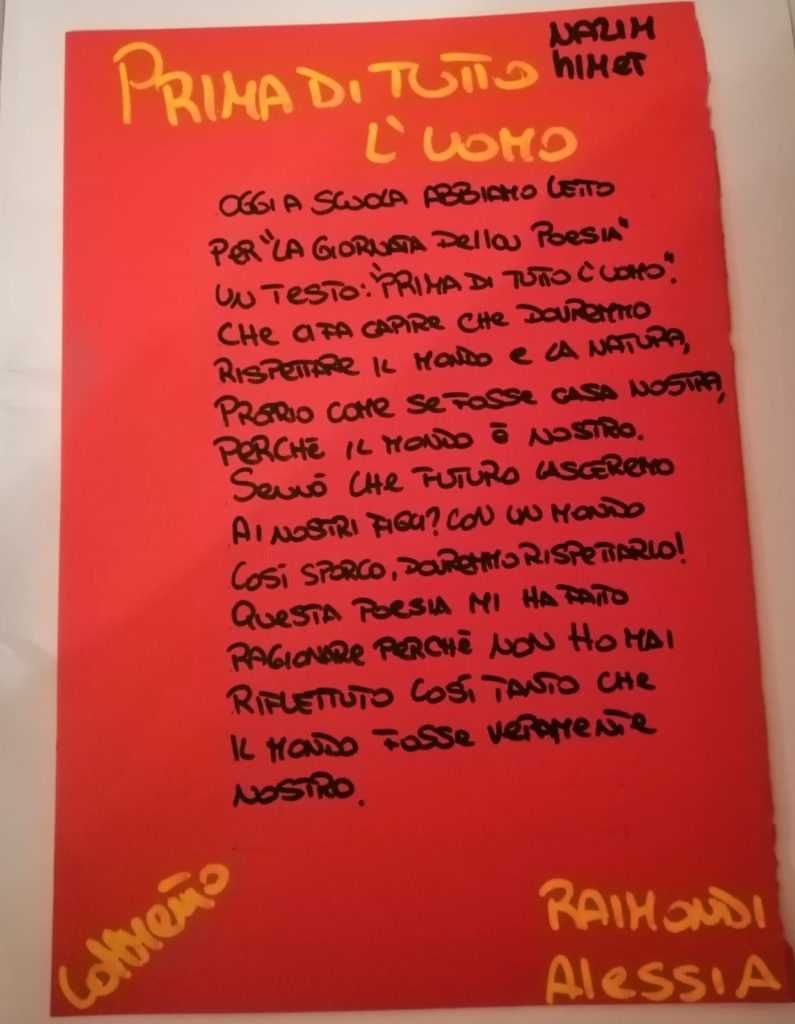 PRIMA DI TUTTO
L'UOMO
NAZIM
HIMET
OGGI A SCUOLA ABBIAMO LETTO
PER "LA GIORNATA Della POESIA"
UN TESTO: "PRIMA DI TUTTO L'UOMO".
CHE CI FA CAPIRE CHE DOVREMMO
RISPETTARE IL MONDO e LA NATURA,
PROPRIO COME SE FOSSE CASA NOSTRA,
PERCHÈ IL MONDO È NOSTRO.
SENNÒ CHE FUTURO LASCEREMO
AI NOSTRI FIGLI? CON UN MONDO
COSÌ SPORCO, DOVREMMO RISPETTARLO!
QUESTA POESIA MI HA FATTO
RAGIONARE PERCHÈ NON HO MAI
RIFLETTUTO COSÌ TANTO CHE
IL MONDO FOSSE VERAMENTE
NOSTRO.
RAIMONDI
ALESSIA